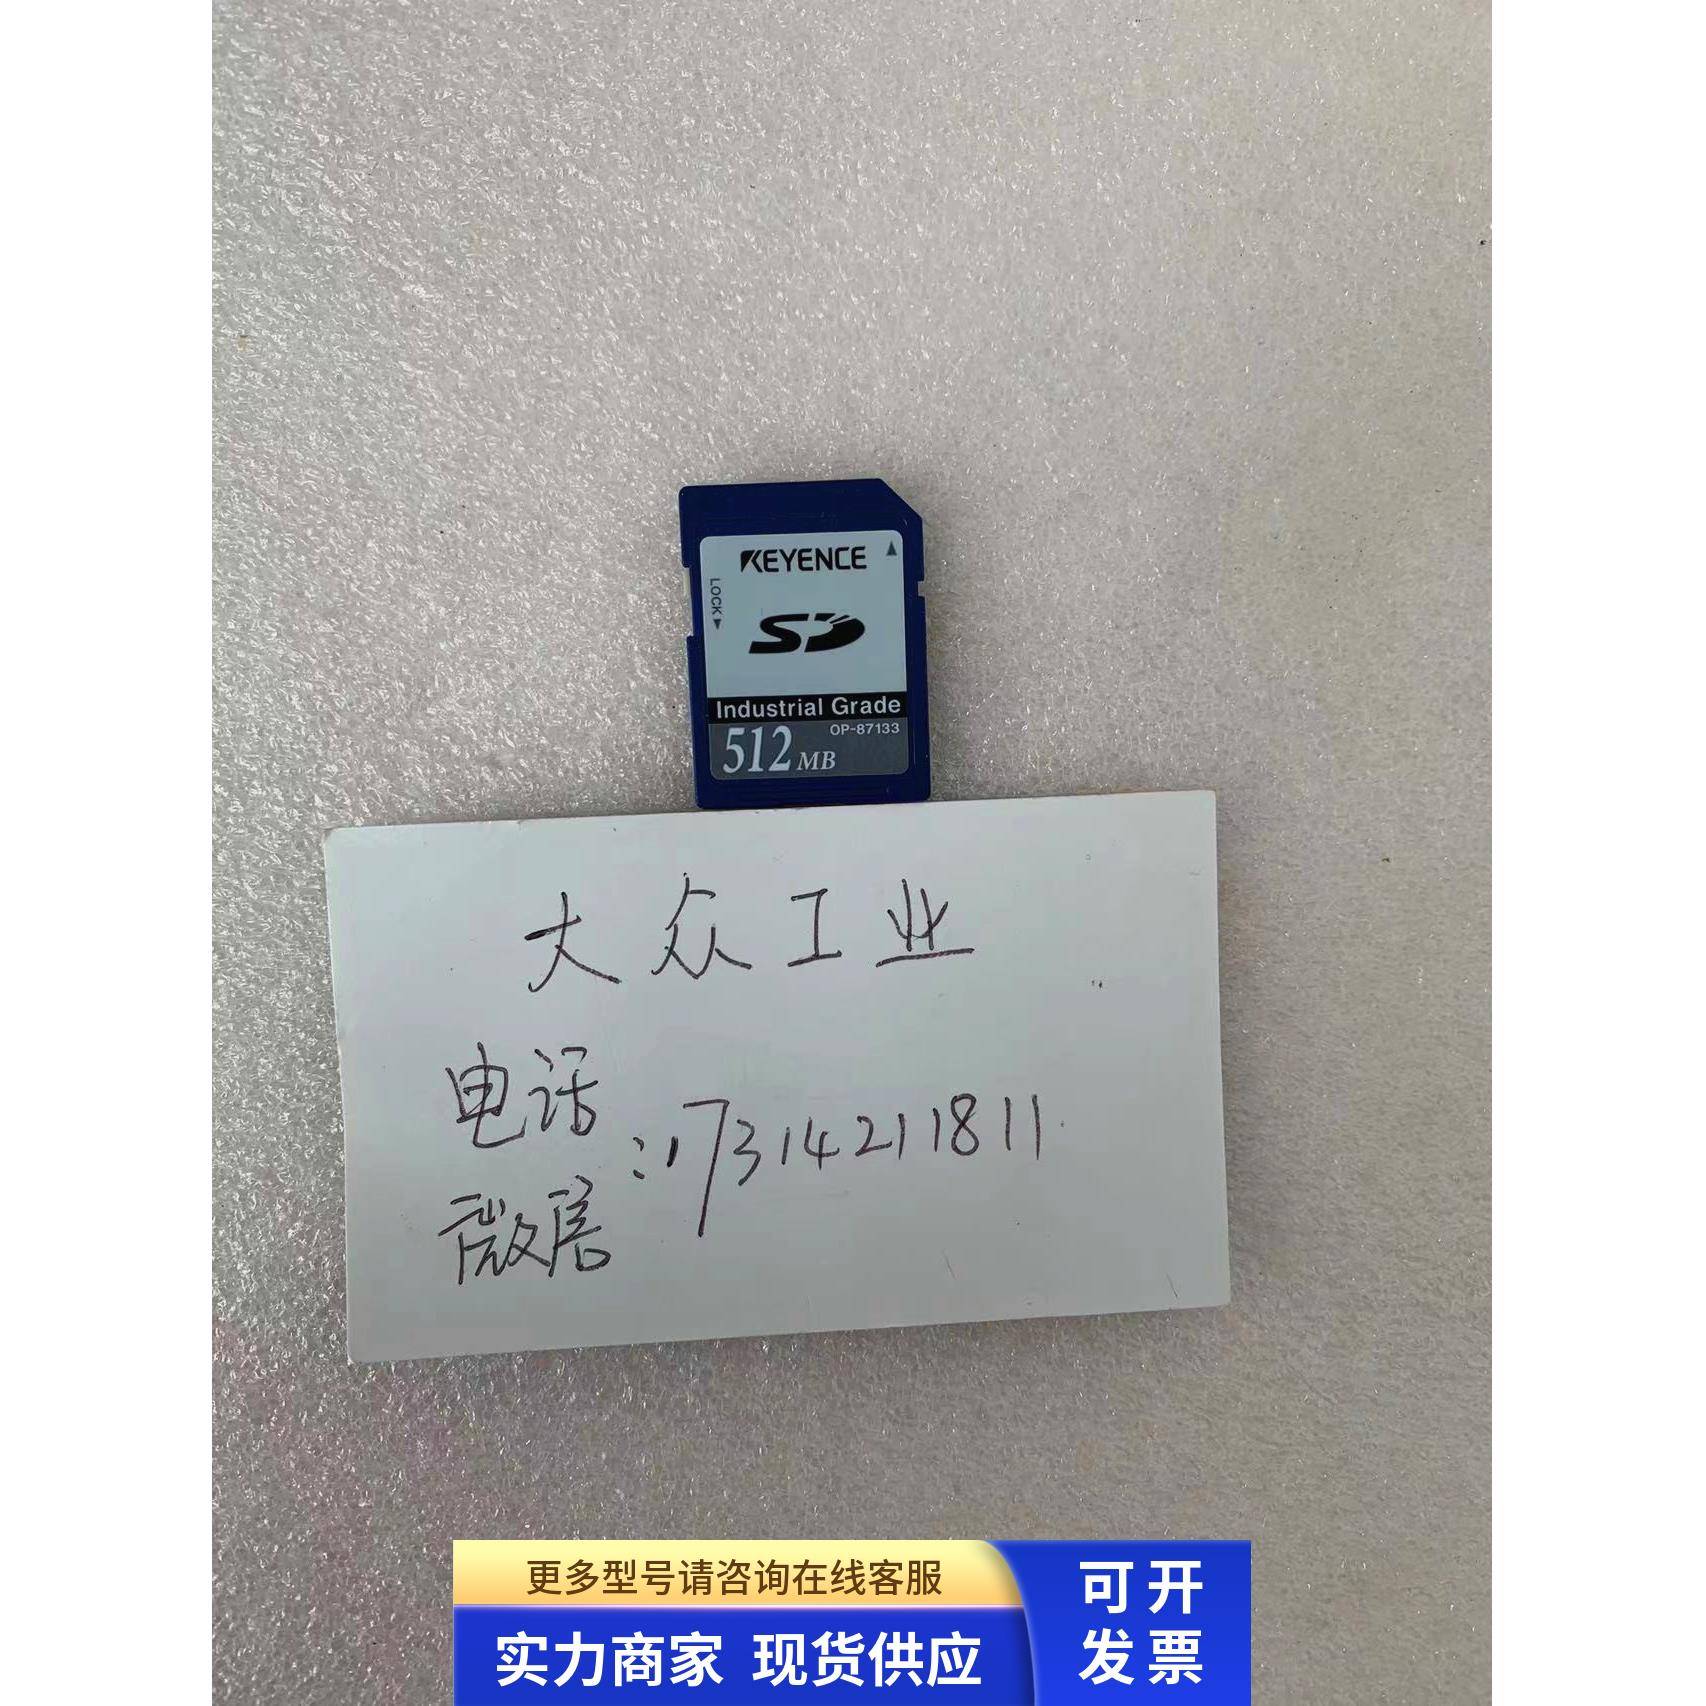 KEYENCE
LOCK
SD
Industrial Grade
OP-87133
512 MB
大众工业
电话
:17314211811
微信
更多型号请咨询在线客服
实力商家 现货供应
可开
发票